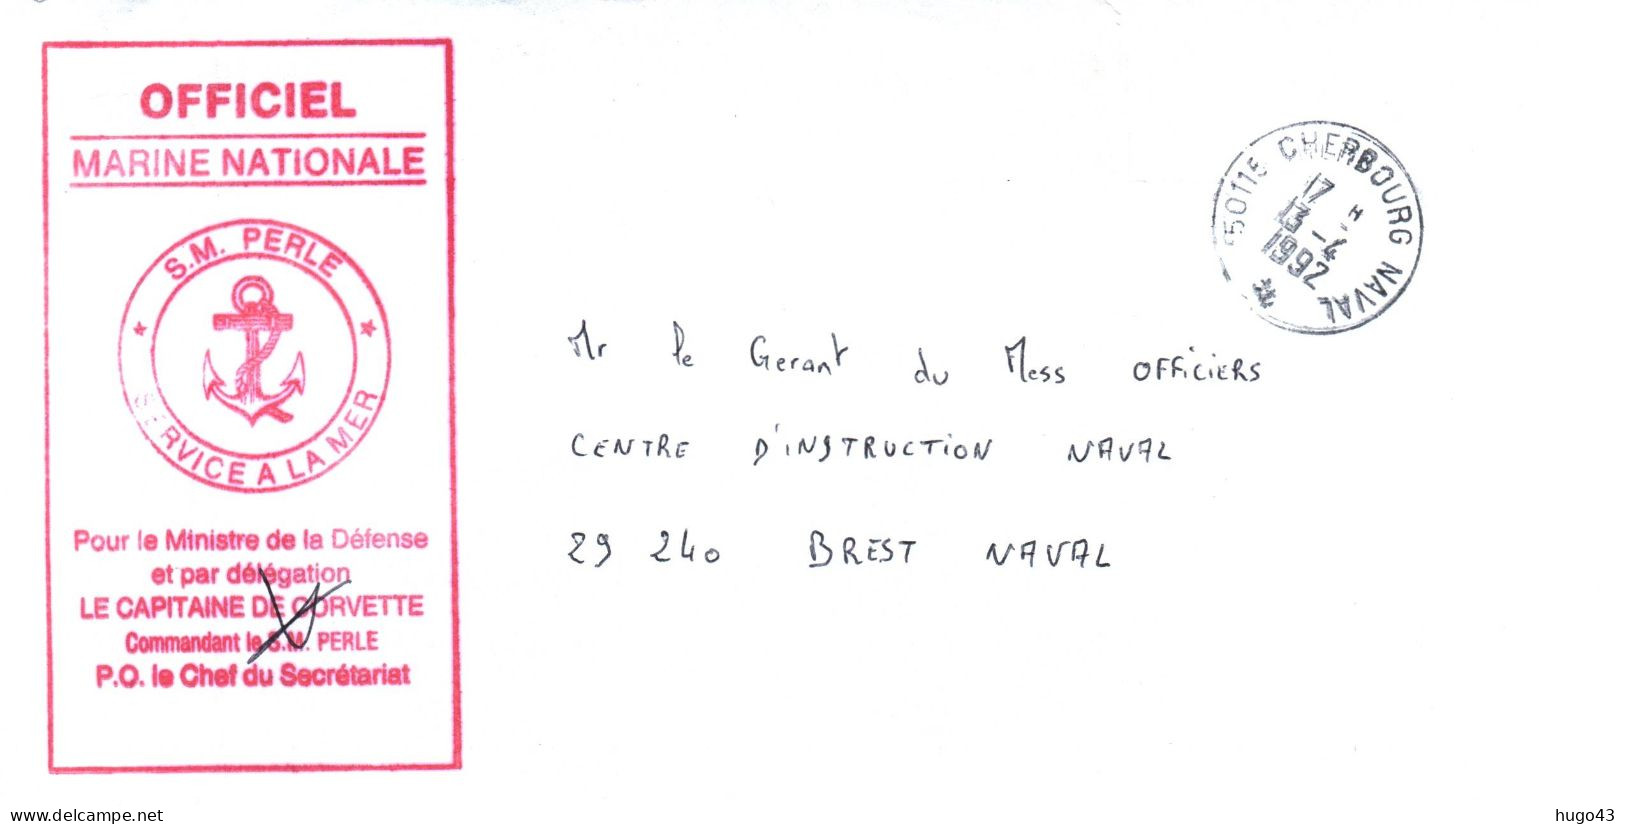 OFFICIEL
MARINE NATIONALE
S.M. PERLE
SERVICE A LA MER
Pour le Ministre de la Défense
et par délégation
LE CAPITAINE DE CORVETTE
Commandant le S.M. PERLE
P.O. le Chef du Secrétariat
50115 CHERBOURG NAVAL
17 H
13-4
1992
Mr le Gerant du Mess OFFICIERS
CENTRE D'INSTRUCTION NAVAL
29 240 BREST NAVAL
delcampe.net
hugo43